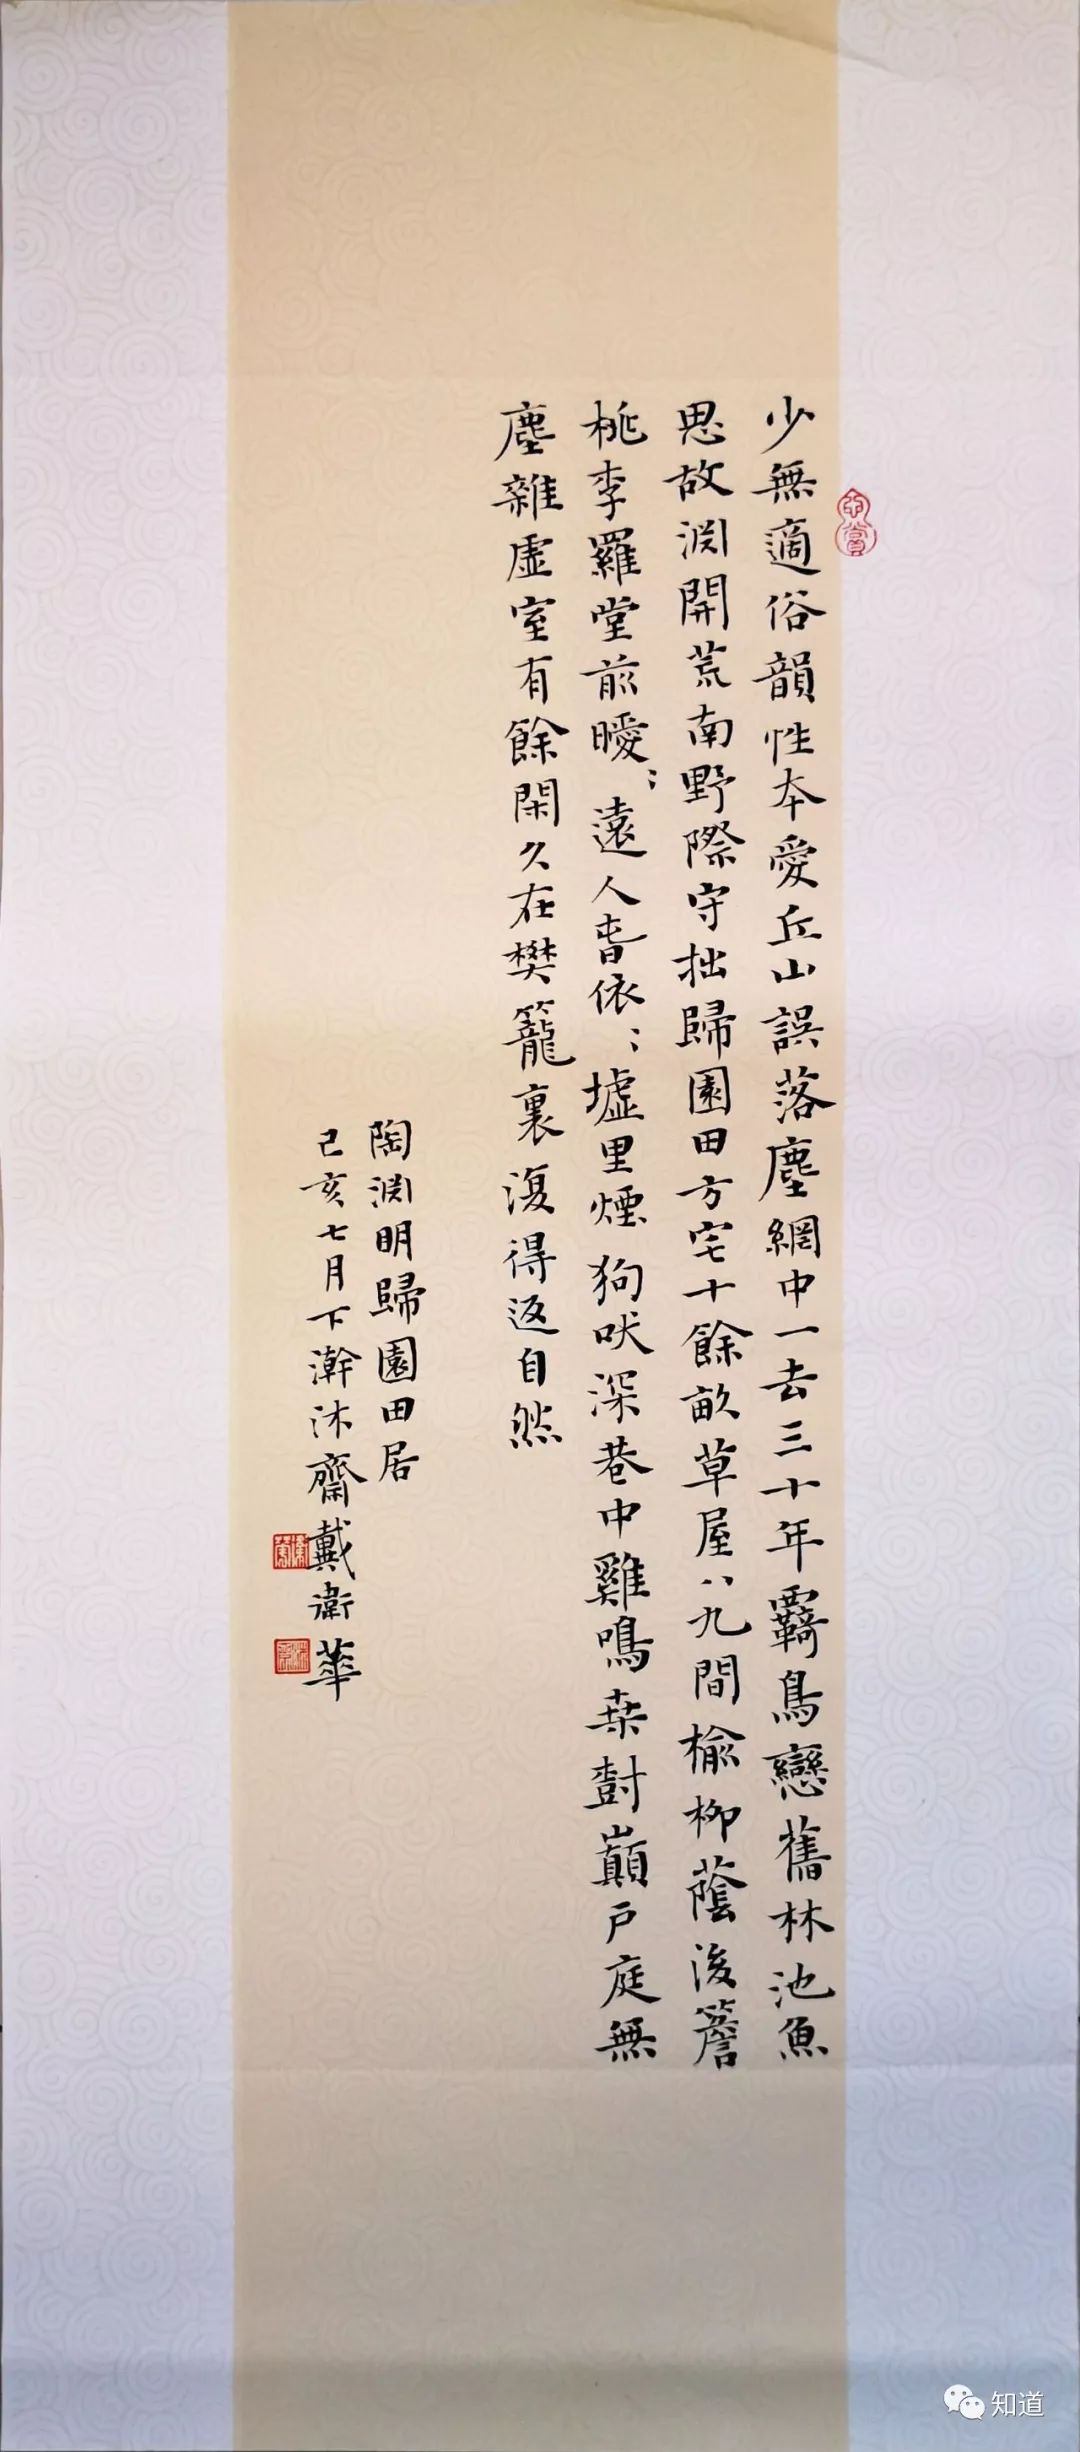 少無適俗韻性本愛丘山誤落塵網中一去三十年羇鳥戀舊林池魚
思故淵開荒南野際守拙歸園田方宅十餘畝草屋八九間榆柳蔭後簷
桃李羅堂前曖〻遠人邨依〻墟里煙狗吠深巷中雞鳴桑樹巔戶庭無
塵雜虛室有餘閑久在樊籠裏復得返自然
陶淵明歸園田居
己亥七月下澣沐齋戴衛華
知道